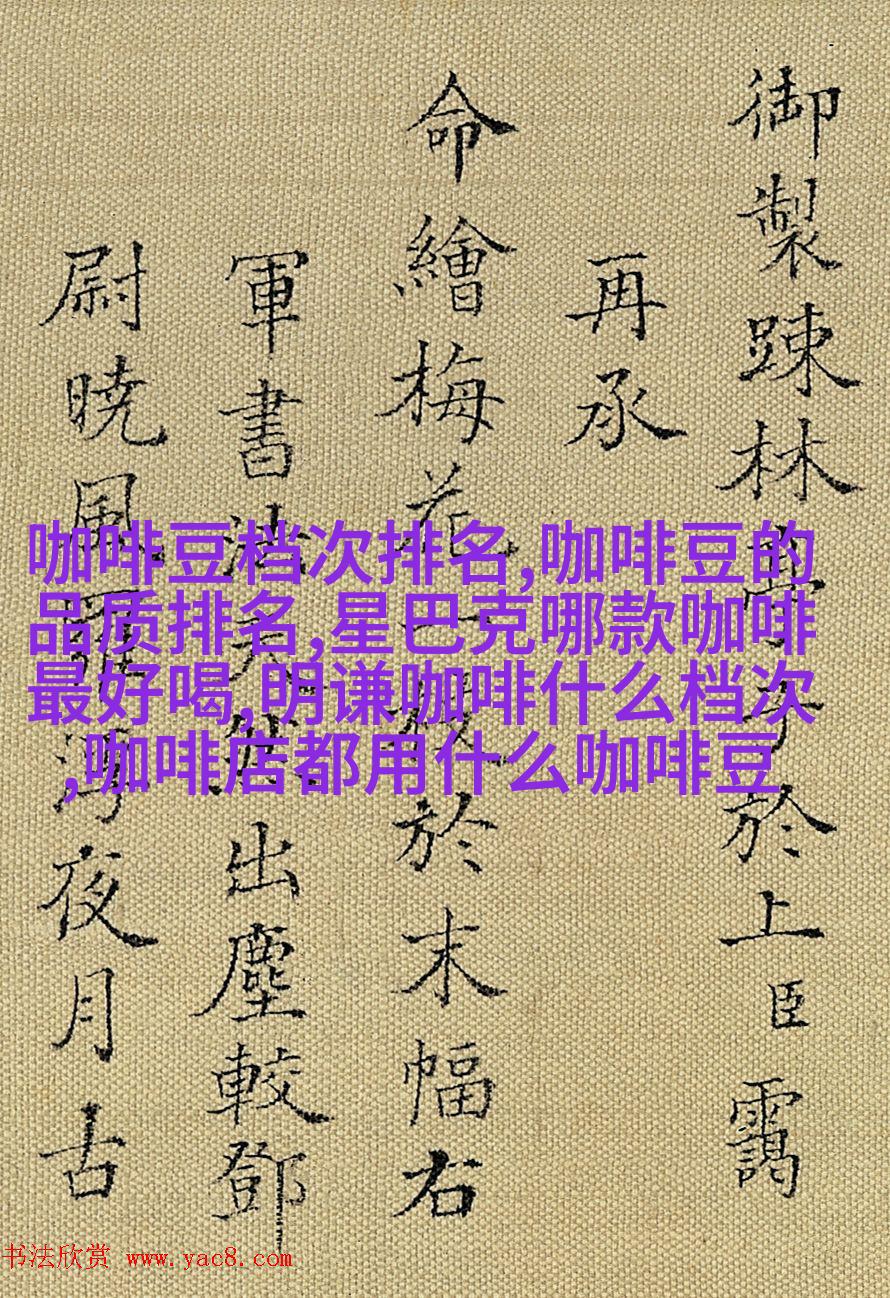 御製踈林亭子於上臣靄
再承
命繪梅花一枝於末幅右
軍書法天然出塵較鄧
尉曉風夜月古
咖啡豆档次排名,咖啡豆的
品质排名,星巴克哪款咖啡
最好喝,明谦咖啡什么档次
,咖啡店都用什么咖啡豆
书法欣赏 www.yac8.com